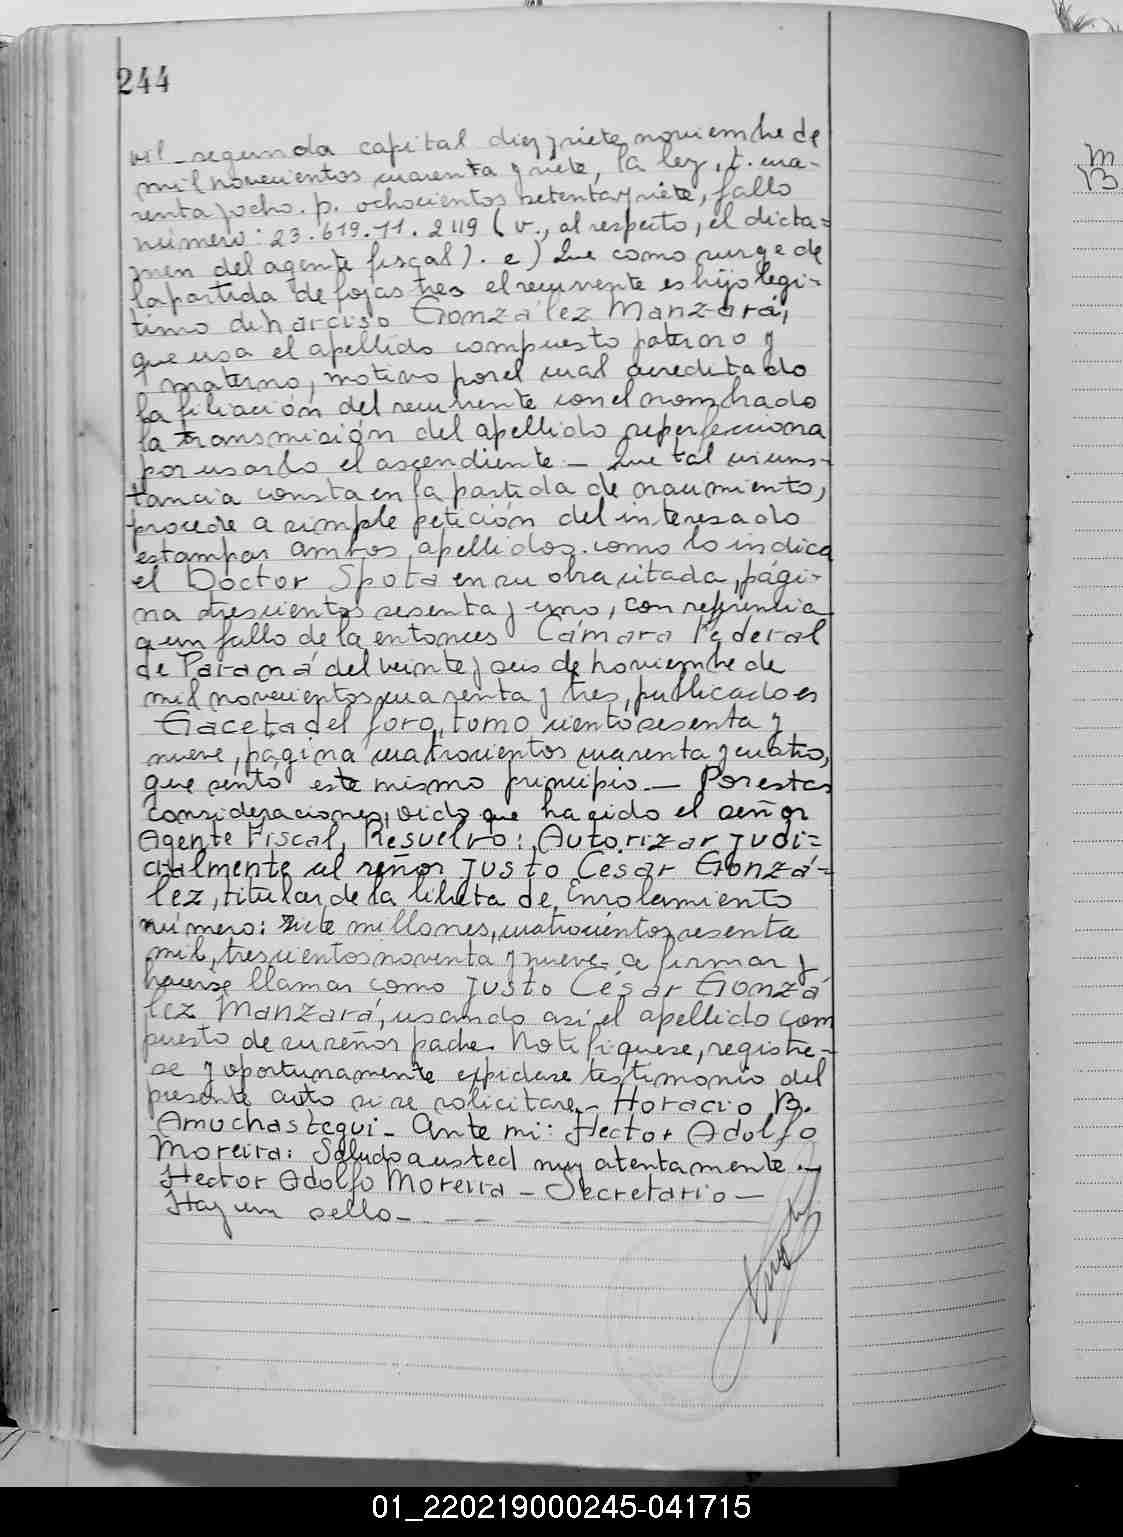 244
vil segunda capital diez y siete noviembre de
mil novecientos cuarenta y siete, la ley, t. cua-
renta y ocho. p. ochocientos setenta y siete, fallo
número: 23.619.11.2119 (v., al respecto, el dicta=
men del agente fiscal). e) Que como surge de
la partida de fojas tres el recurrente es hijo legí-
timo de Narciso González Manzará,
que usa el apellido compuesto paterno y
materno, motivo por el cual acreditado
la filiación del recurrente con el nombrado
la transmisión del apellido se perfecciona
por usarlo el ascendiente - Que tal circuns-
tancia consta en la partida de nacimiento,
procede a simple petición del interesado
estampar ambos apellidos. como lo indica
el Doctor Spota en su obra citada, pági-
na trescientos sesenta y uno, con referencia
a un fallo de la entonces Cámara Federal
de Paraná del veinte y seis de noviembre de
mil novecientos cuarenta y tres, publicado es
Gaceta del foro, tomo ciento sesenta y
nueve, página cuatrocientos cuarenta y cuatro,
que sentó este mismo principio.- Por estas
consideraciones, oido que ha sido el señor
Agente Fiscal, Resuelvo: Autorizar judi=
cialmente al señor Justo César Gonzá=
lez, titular de la libreta de Enrolamiento
número: siete millones, cuatrocientos sesenta
mil, trescientos noventa y nueve- a firmar y
hacerse llamar como Justo César Gonzá
lez Manzará, usando así el apellido com
puesto de su señor padre. Notifíquese, regístre=
se y oportunamente expídase testimonio del
presente auto si se solicitare.- Horacio B.
Amuchastegui- Ante mi: Hector Adolfo
Moreira: Saludo a usted muy atentamente.-
Hector Adolfo Moreira - Secretario -
Hay un sello-
m
B
01_220219000245-041715